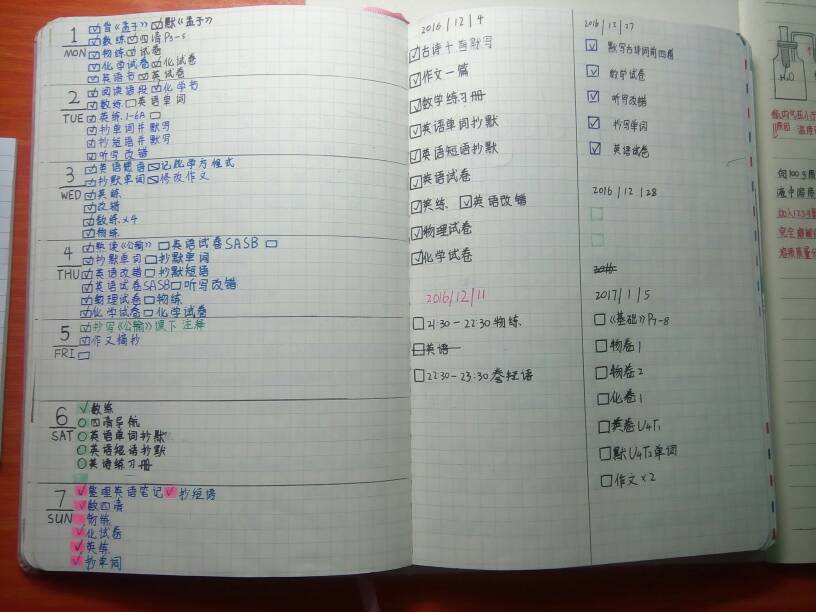 1
MON
背《孟子》 默《孟子》
数练 四清P3-5
物练 试卷
化学试卷 化试卷
英语书 英试卷
2
TUE
阅读语段 化学书
数练 英语单词
英练1-6A
抄单词并默写
抄短语并默写
听写改错
3
WED
英语短语 记化学方程式
抄默单词 修改作文
英练
改错
数练×4
物练
4
THU
熟读《公输》 英语试卷SASB
抄默单词 抄默单词
英语改错 抄默短语
英语试卷SASB 听写改错
物理试卷 物练
化学试卷 化学试卷
5
FRI
抄写《公输》课下注释
作文摘抄
6
SAT
数练
四清导航
英语单词抄默
英语短语抄默
英语练习册
7
SUN
整理英语笔记 抄短语
数四清
物练
化试卷
英练
抄单词
2016/12/4
古诗十首默写
作文一篇
数学练习册
英语单词抄默
英语短语抄默
英语试卷
英练、 英语改错
物理试卷
化学试卷
2016/12/11
21:30-22:30 物练、
英语
22:30-23:30 短语
2016/12/27
默写古诗词前四首
数学试卷
听写改错
抄写单词
英语试卷
2016/12/28
2016
2017/1/5
《基础》P7-8
物卷1
物卷2
化卷1
英卷U4T1
默U4T2单词
作文×2
H2O